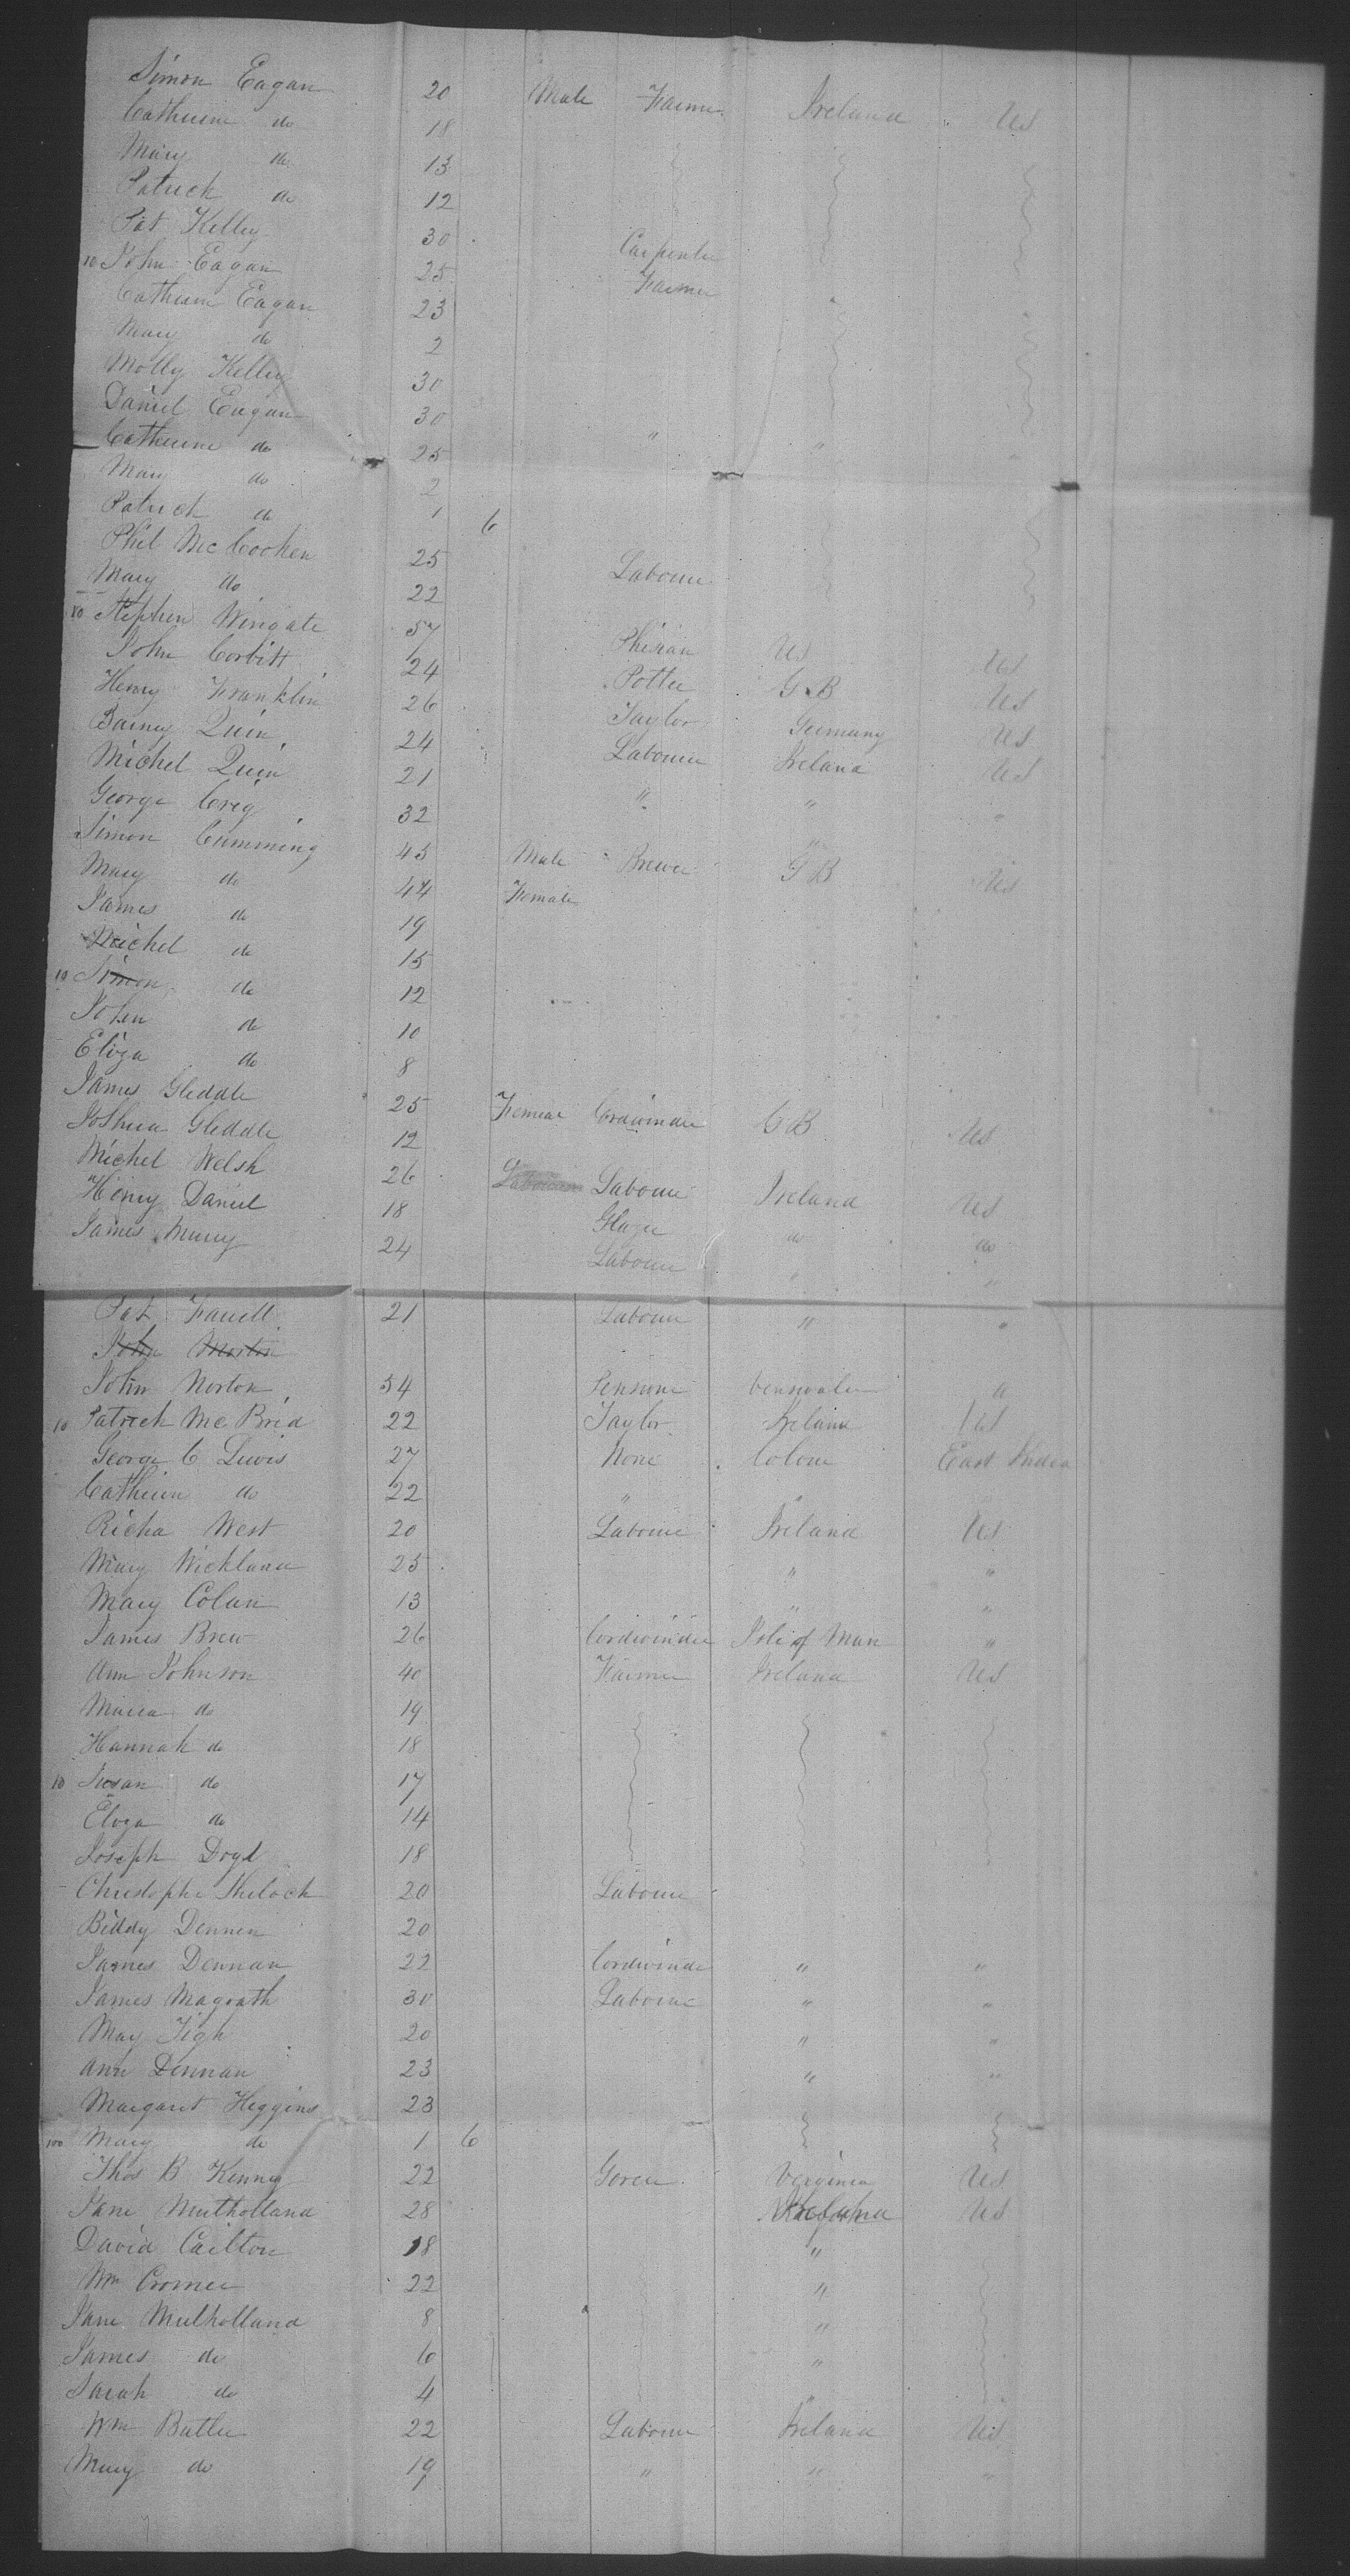 Simon Eagan 20 Male Farmer Ireland US
Catherine do 18
Mary do 13
Patrick do 12
Pat Kelley 30 Carpenter
10 John Eagan 25 Farmer
Catherine Eagan 23
Mary do 2
Molly Kelley 30
Daniel Eagan 30
Catherine do 25 " "
Mary do 2
Patrick do 1 6
Phil McCochen 25 Labourer
Mary do 22
80 Stephen Wingate 57 Phisian US US
John Corbitt 24 Potter GB US
Henry Franklin 26 Taylor Germany US
Barney Quin 24 Labourer Ireland US
Michel Quin 21 " " "
George Creig 32 "
Simon Cumming 45 Male Brewer GB US
Mary do 44 Female
James do 19
Michel do 15
10 Simon do 12
John do 10
Eliza do 8
James Gleddle 25 Cordwinder GB US
Joshua Gleddle 12
Michel Welsh 26 Labourer Labourer Ireland US
Henry Daniel 18 Glazer do do
James Murry 24 Labourer " "
Pat Farrell 21 Labourer " "
John Morton
John Norton 54 "
10 Patrick McBrid 22 Taylor Ireland US
George C Lewis 27 None East India
Catherine do 22 " "
Richa West 20 Labourer Ireland US
Mary Wickland 25 " "
Mary Colan 13 " "
James Brew 26 Cordwinder Isle of Man "
Ann Johnson 40 Farmer Ireland US
Maria do 19
Hannah do 18
10 Susan do 17
Eliza do 14
Joseph Doyl 18
Christopher 20 Labourer
Biddy Dennen 20
James Dennan 22 Cordwinder " "
James Magrath 30 Labourer " "
May Tigh 20 " "
Ann Dennan 23 " "
Margaret Higgins 23
100 Mary do 1 6
Thos B Kenney 22 Virginia US
Jane Mulholland 28 Ireland US
David Carlton 18 "
Wm Cromer 22 "
Jane Mulholland 8 "
James do 6 "
Sarah do 4 "
Wm Butler 22 Labourer Ireland US
Mary do 19 " " "